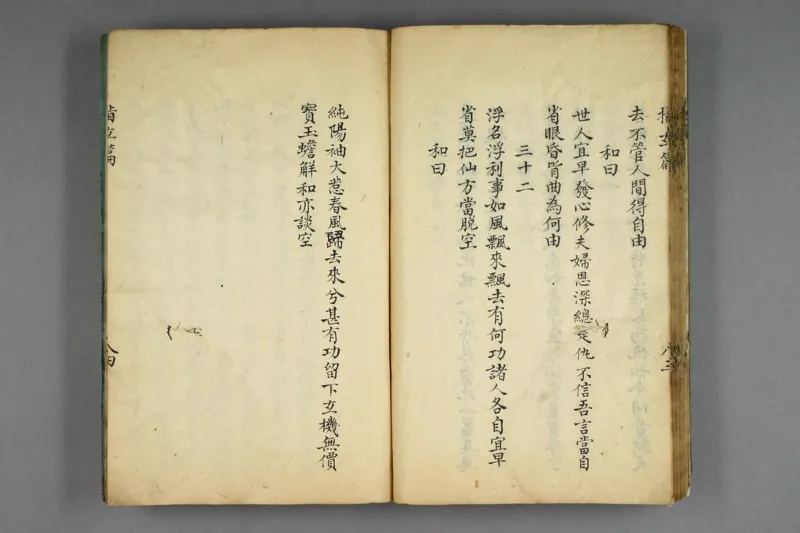 指玄篇
八三
去不管人間得自由
和曰
世人宜早發心修夫婦恩深總是仇不信吾言當自
省眼昏背曲為何由
三十二
浮名浮利事如風飄來飄去有何功諸人各自宜早
省莫把仙方當脫空
和曰
純陽袖大惹春風歸去來兮甚有功留下玄機無價
寶玉蟾解和亦談空
指玄篇
八四